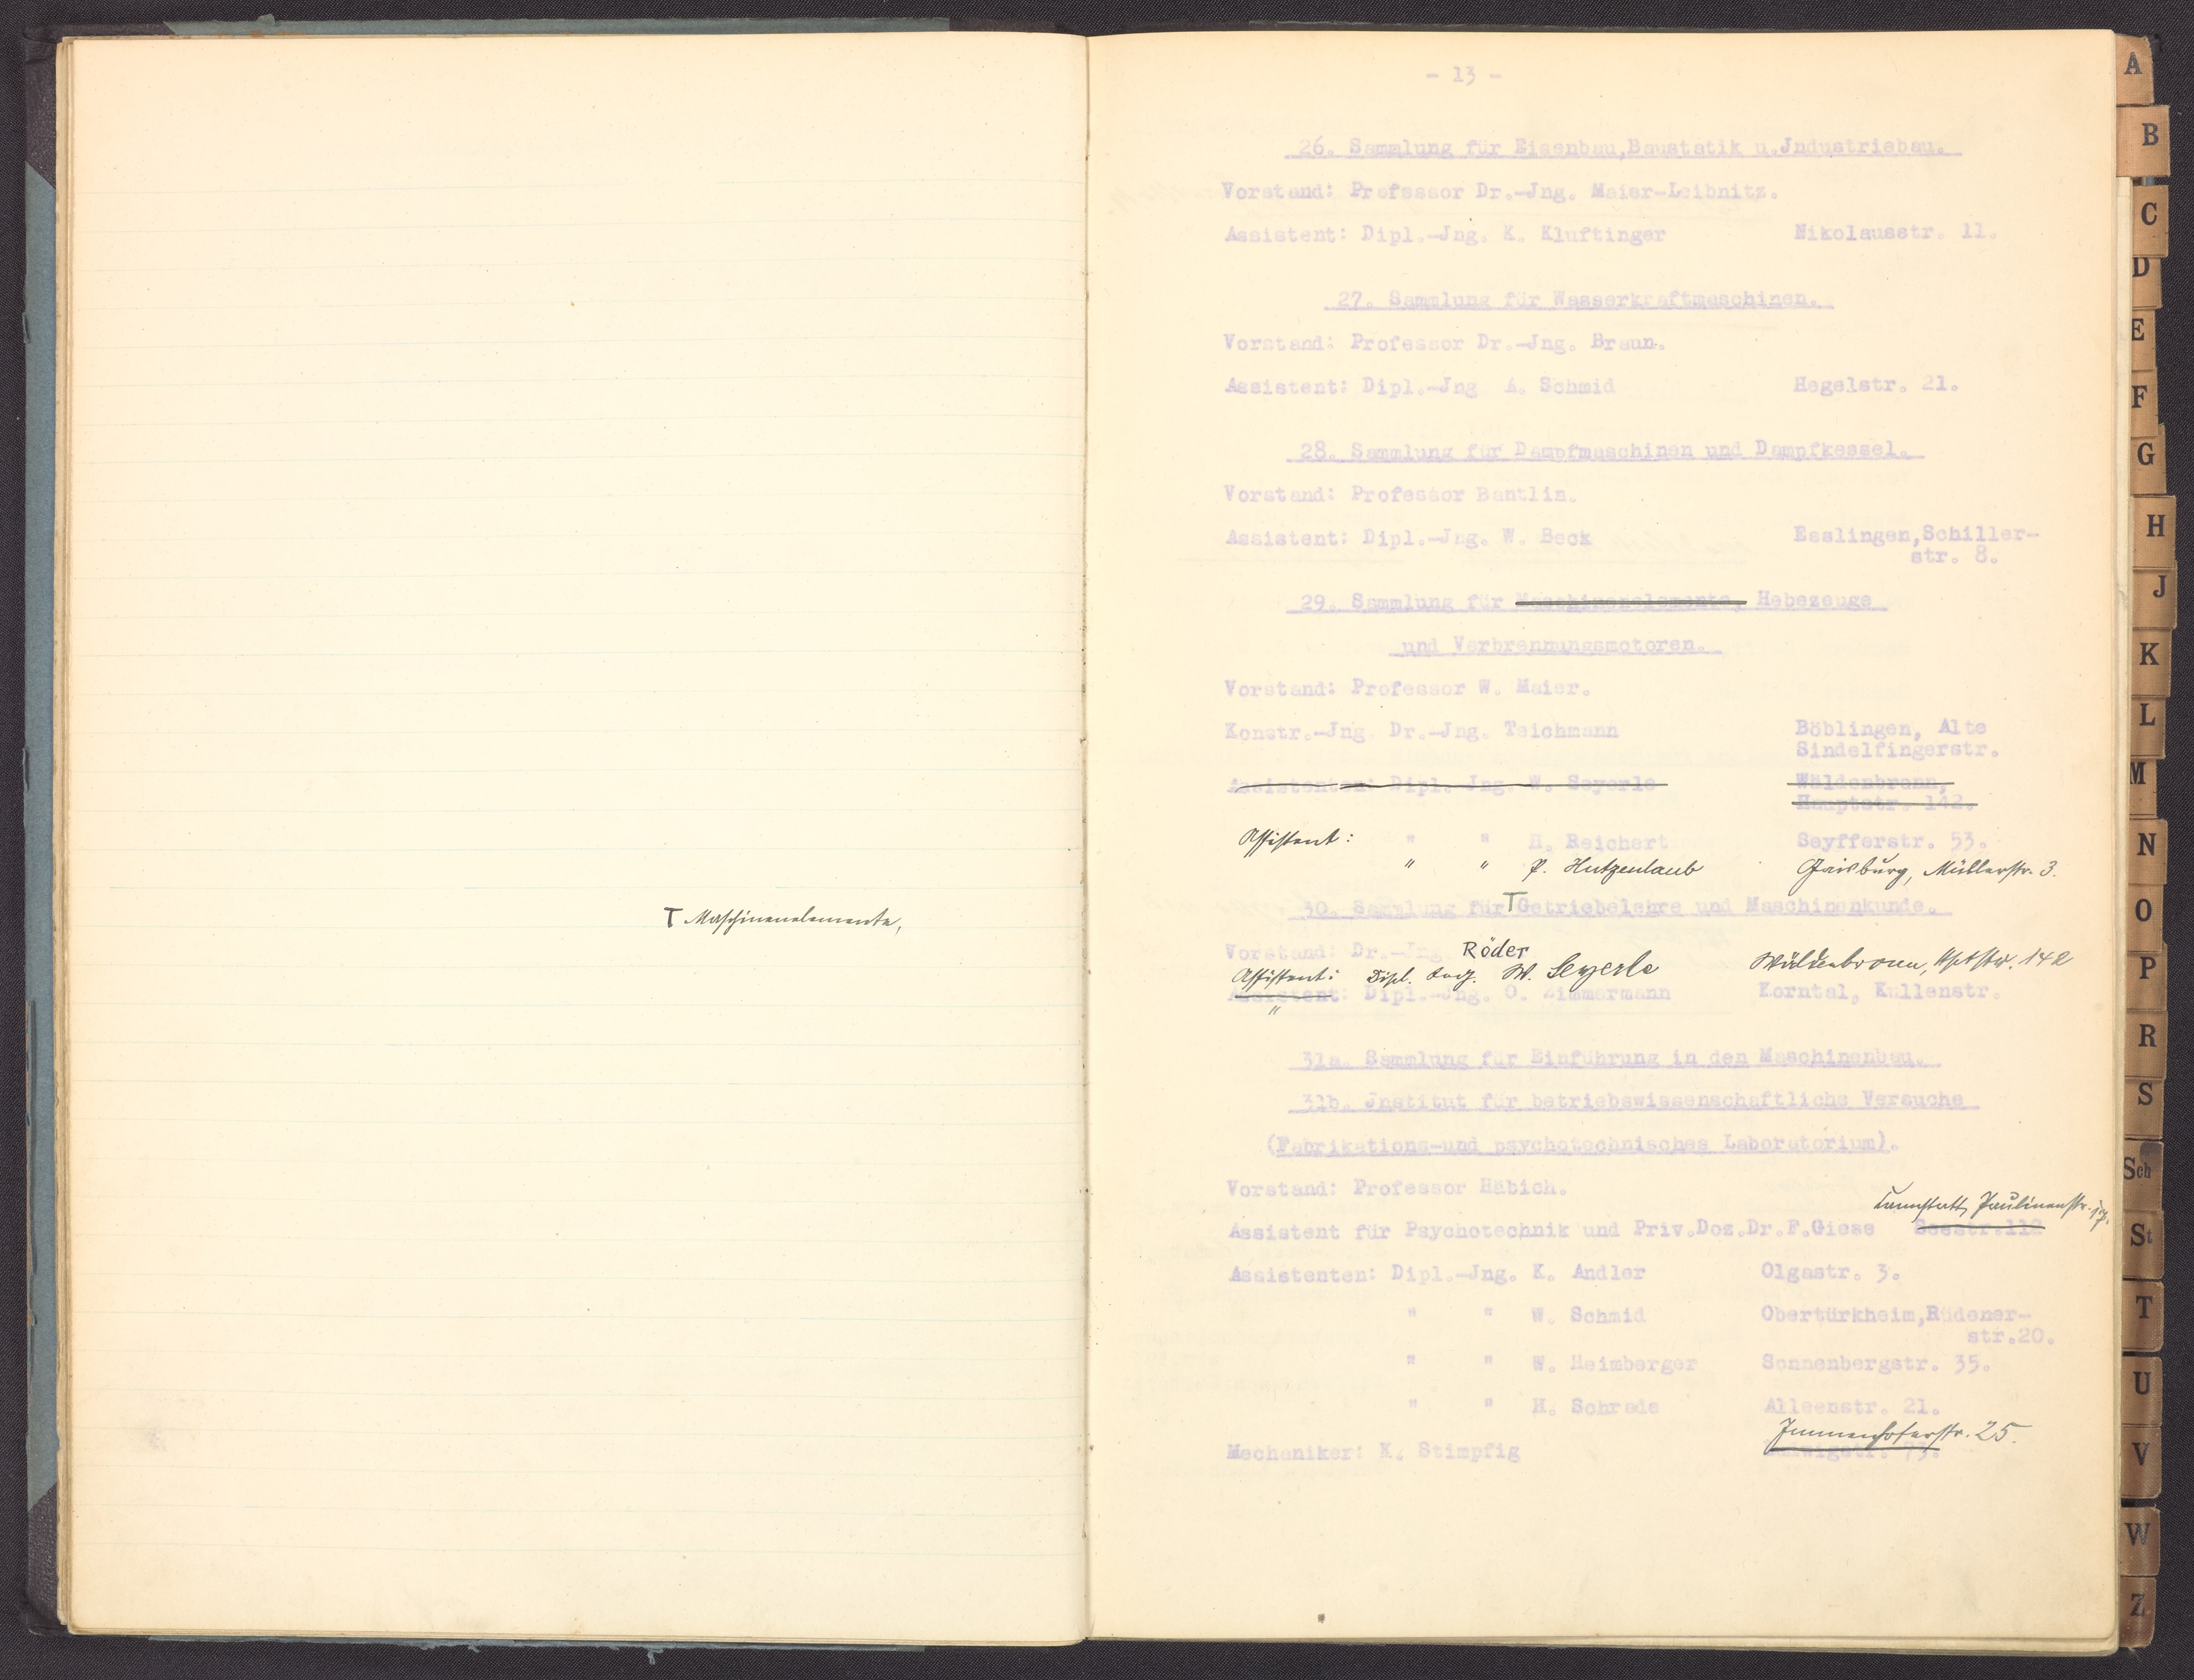 T Maschinenelemente,
- 13 -
26. Sammlung für Eisenbau,Baustatik u.Jndustriebau.
Vorstand: Professor Dr.-Jng. Maier-Leibnitz.
Assistent: Dipl.-Jng. K. Kluftinger Nikolausstr. 11.
27. Sammlung für Wasserkraftmaschinen.
Vorstand: Professor Dr.-Jng. Braun.
Assistent: Dipl.-Jng A. Schmid Hegelstr. 21.
28. Sammlung für Dampfmaschinen und Dampfkessel.
Vorstand: Professor Bantlin.
Assistent: Dipl.-Jng. W. Beck Esslingen,Schiller-
str. 8.
29. Sammlung für Maschinenelemente, Hebezeuge
und Verbrennungsmotoren.
Vorstand: Professor W. Maier.
Konstr.-Jng. Dr.-Jng. Teichmann Böblingen, Alte
Sindelfingerstr.
Assistenten: Dipl.-Jng. W. Seyerle Wäldenbronn,
Hauptstr. 142.
Assistent: " " H. Reichert Seyfferstr. 53.
" " P. Hutzenlaub Gaisburg, Müllerstr. 3.
30. Sammlung für T Getriebelehre und Maschinenkunde.
Vorstand: Dr.-Jng. Röder
Assistent: Dipl. Ing. W. Seyerle Wäldenbronn, Hptstr. 142
Assistent: Dipl.-Jng. O. Zimmermann Korntal, Kullenstr.
"
31a. Sammlung für Einführung in den Maschinenbau.
31b. Jnstitut für betriebswissenschaftliche Versuche
(Fabrikations-und psychotechnisches Laboratorium).
Vorstand: Professor Häbich.
Cannstatt, Paulinenstr.
Assistent für Psychotechnik und Priv.Doz.Dr.F.Giese Seestr.112
Assistenten: Dipl.-Jng. K. Andler Olgastr. 3.
" " W. Schmid Obertürkheim,Rüdener-
str.20.
" " W. Heimberger Sonnenbergstr. 35.
" " H. Schrade Alleenstr. 21.
Immenhoferstr. 25.
Mechaniker: K. Stimpfig
A
B
C
D
E
F
G
H
J
K
L
M
N
O
P
R
S
Sch
St
T
U
V
W
Z